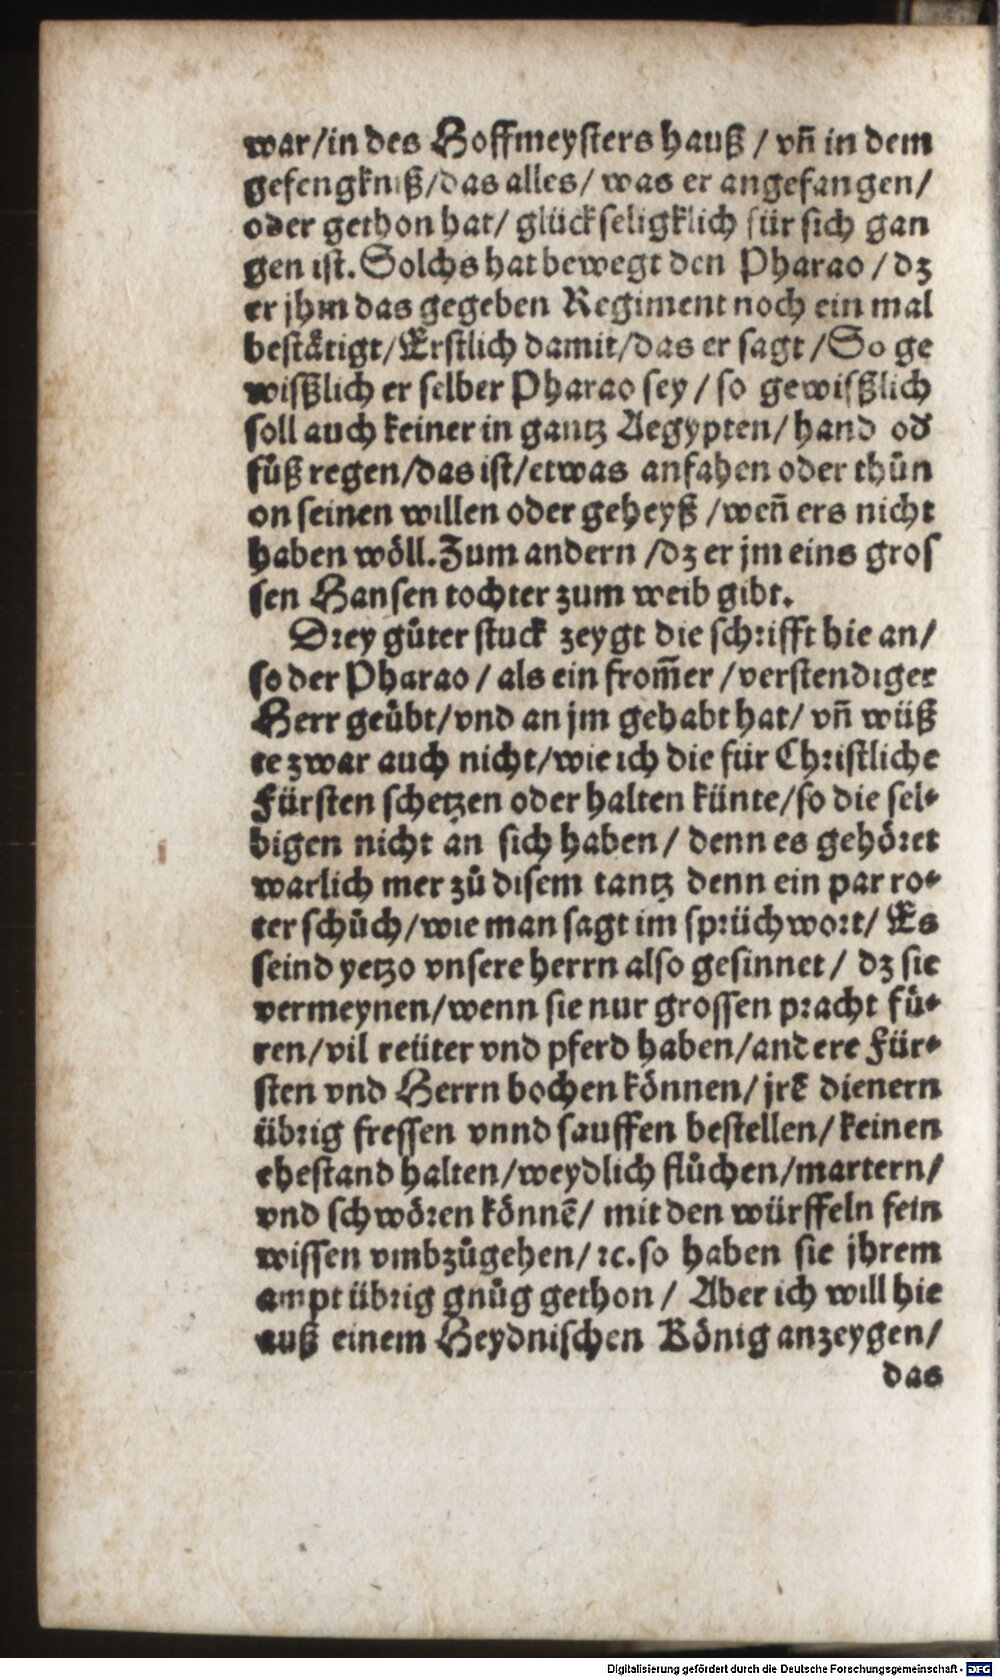 war/in des Hoffmeysters hauß / vñ in dem
gefengkniß/das alles/ was er angefangen/
oder gethon hat/ glückseligklich für sich gan
gen ist. Solchs hat bewegt den Pharao / dz
er jhm das gegeben Regiment noch ein mal
beståtigt/Erstlich damit/das er sagt /So ge
wißlich er selber Pharao sey / so gewißlich
soll auch keiner in gantz Aegypten/ hand od'
fůß regen/das ist/etwas anfahen oder thůn
on seinen willen oder geheyß /weñ ers nicht
haben wöll. Zum andern /dz er jm eins gros
sen Hansen tochter zum weib gibt.
Drey gůter stuck zeygt die schrifft hie an/
so der Pharao / als ein from̃er /verstendiger
Herr geůbt/vnd an jm gehabt hat/ vñ wüß
te zwar auch nicht/wie ich die für Christliche
Fürsten schetzen oder halten künte/so die sel-
bigen nicht an sich haben / denn es gehöret
warlich mer zů disem tantz denn ein par ro-
ter schůch/wie man sagt im sprüchwort/ Es
seind yetzo vnsere herrn also gesinnet / dz sie
vermeynen/wenn sie nur grossen pracht fů-
ren/vil reüter vnd pferd haben/andere Für-
sten vnd Herrn bochen können/ jrē dienern
übrig fressen vnnd sauffen bestellen/ keinen
ehestand halten/weydlich flůchen/martern/
vnd schwören könnē/ mit den würffeln fein
wissen vmbzůgehen/ ꝛc. so haben sie jhrem
ampt übrig gnůg gethon / Aber ich will hie
auß einem Heydnischen König anzeygen/
das
Digitalisierung gefördert durch die Deutsche Forschungsgemeinschaft - DFG